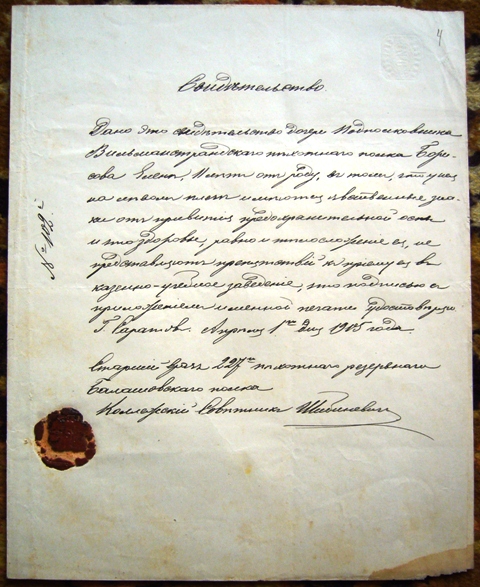 4
Свидѣтельство.
Дано это свидѣтельство дочери Подполковника
Вильманстрандскаго пѣхотнаго полка Бори-
сова Еленѣ, лѣтъ отъ роду, въ томъ, что у нея
на лѣвомъ плечѣ имѣются явственные зна-
ки отъ привитія предохранительной оспы
и что здоровье, равно и тѣлосложеніе ея, не
представляютъ препятствій къ пріему ея въ
казенно-учебное заведеніе, что подписью съ
приложеніемъ именной печати удостовѣряю.
Г. Саратовъ. Апрѣля 1го дня 1905 года.
Старшій врачъ 227го пѣхотнаго резервнаго
Балашовскаго полка
Коллежскій Совѣтникъ